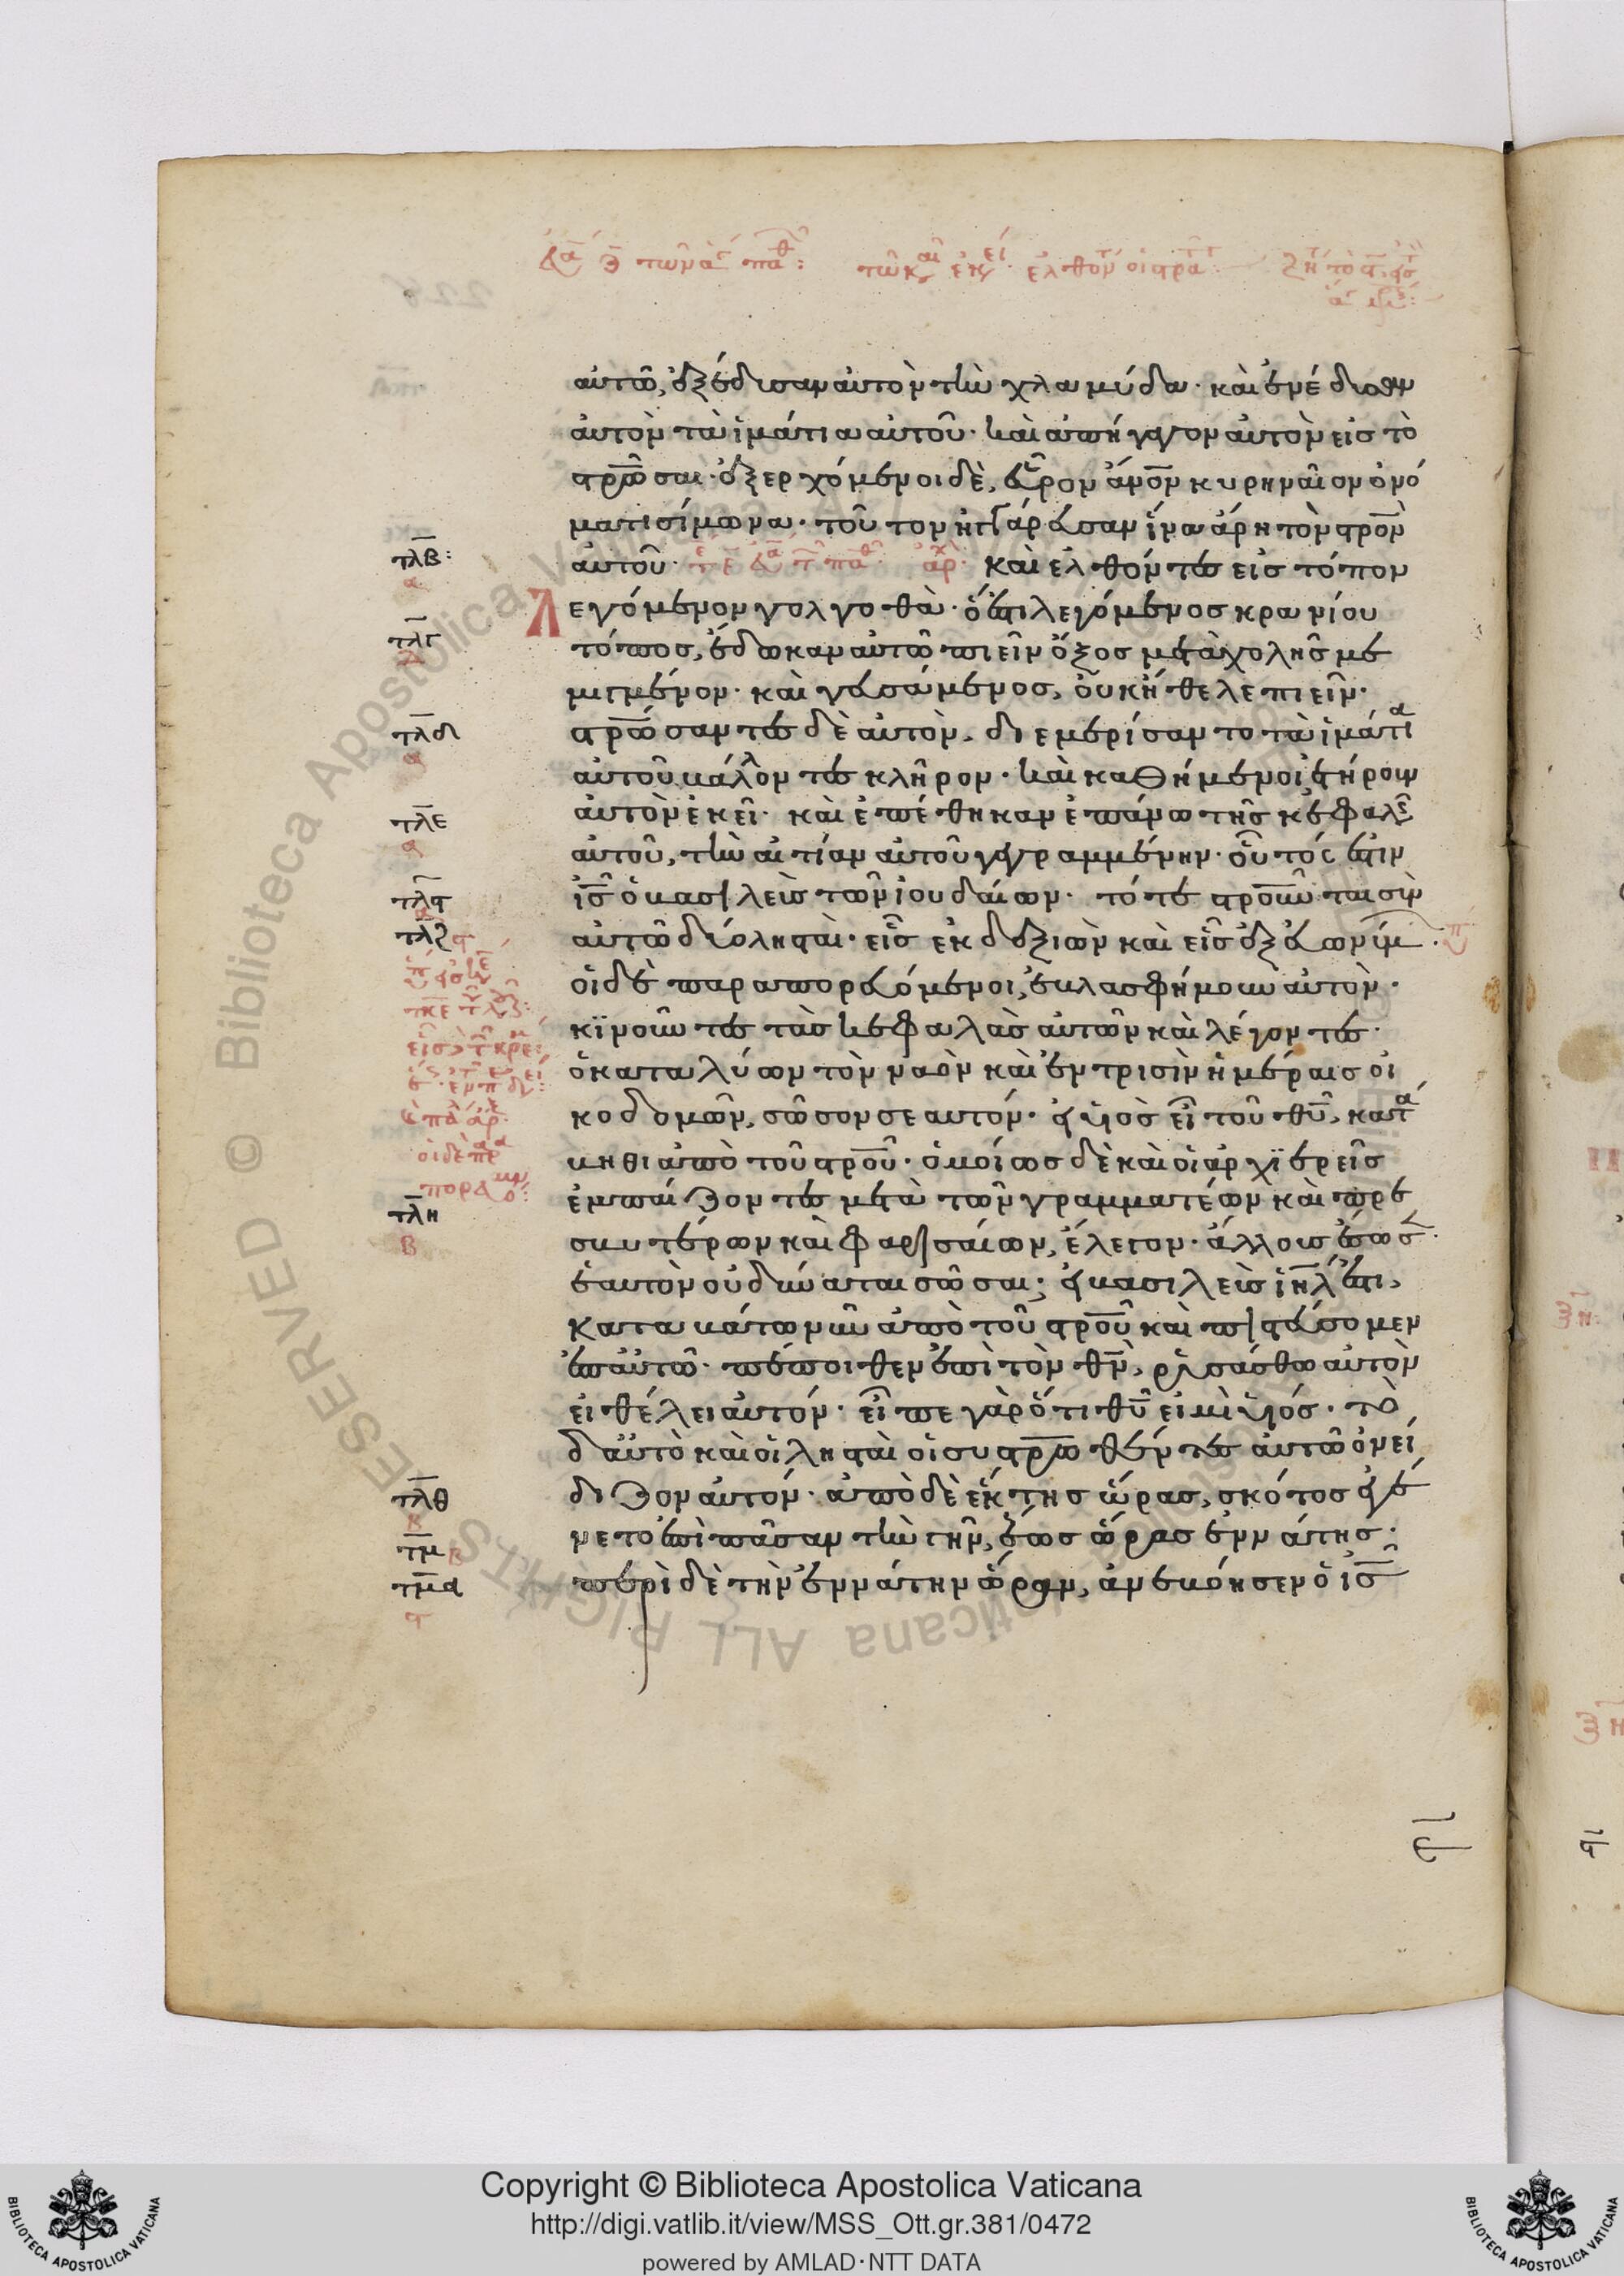 αὐτῶ, ἐξέδυσαν αὐτὸν τὴν χλαμύδα· καὶ ἐνέδυσαν
αὐτὸν τὰ ἱμάτια αὐτοῦ· καὶ ἀπήγαγον αὐτὸν εἰς τὸ
στρῶσαι· ἐξερχόμενοι δὲ, εὗρον ἄνον κυρηναῖον ὀνό
ματι σίμωνα· τοῦτον ἠγγάρευσαν ἵνα ἄρη τὸν στρον
τλβ:
α
αὐτοῦ· καὶ ἐλθόντες εἰς τόπον
λεγόμενον γολγοθὰ· ὅ ἐστι λεγόμενος κρανίου
τλγ
τόπος, ἔδωκαν αὐτῶ πιεῖν ὄξος μετὰ χολῆς με
μιγμένον· καὶ γευσάμενος, οὐκ ἤθελε πιεῖν·
τλδ
α
στρώσαντες δὲ αὐτὸν, διεμερίσαντο τὰ ἱμάτια
αὐτοῦ βάλοντες κλῆρον· καὶ καθήμενοι ἐτήρουν
τλε
α
αὐτὸν ἐκεῖ· καὶ ἐπέθηκαν ἐπάνω τῆς κεφαλῆς
αὐτοῦ, τὴν αἰτίαν αὐτοῦ γεγραμμένην· οὗτός ἐστιν
τλϛ
ις ὁ βασιλεὺς τῶν ἰουδαίων· τότε στροῦνται σὺν
τλζ
αὐτῶ δύο λησταί· εἷς ἐκ δεξιῶν καὶ εἷς ἐξ εὐωνύμ·
οἱ δὲ παραπορευόμενοι, ἐβλασφήμουν αὐτὸν·
κϊνοῦντες τὰς κεφαλὰς αὐτῶν καὶ λέγοντες·
ὁ καταλύων τὸν ναὸν καὶ ἐν τρισὶν ἡμέραις οἰ
κοδομῶν, σῶσον σεαυτόν· εἰ υἱὸς εἶ τοῦ θυ, κατά
βηθι ἀπὸ τοῦ στρου· ὁμοίως δὲ καὶ οἱ ἀρχϊερεῖς
τλη
β
ἐμπαίζοντες μετὰ τῶν γραμματέων καὶ πρε
σβυτέρων καὶ φαρισαίων, ἔλεγον· ἄλλους ἔσωσ·
ἑαυτὸν οὐ δύναται σῶσαι· εἰ βασιλεὺς ιηλ ἐστι,
καταβάτω νῦν ἀπὸ τοῦ στρου καὶ πιστεύσομεν
ἐπ αὐτῶ· πέποιθεν ἐπὶ τὸν θν, ῥυσάσθω αὐτὸν
εἰ θέλει αὐτόν· εἶπε γὰρ ὅτι θυ εἰμὶ υἱός· τὸ
δ αὐτὸ καὶ οἱ λησταὶ οἱ συστρωθέντες αὐτῶ ὀνεί
τλθ
β
διζον αὐτόν· ἀπὸ δὲ ἕκτης ὥρας, σκότος ἐγέ
τμ
β
νετο ἐπὶ πᾶσαν τὴν γῆν, ἕως ὥρας ἐννάτης·
τμα
περὶ δὲ τὴν ἐννάτην ὥραν, ἀνεβόησεν ὁ ις
Copyright © Biblioteca Apostolica Vaticana
http://digi.vatlib.it/view/MSS_Ott.gr.381/0472
powered by AMLAD·NTT DATA
BIBLIOTECA APOSTOLICA VATICANA
BIBLIOTECA APOSTOLICA VATICANA